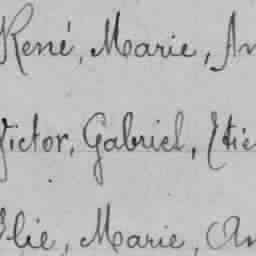 René, Marie, An
Victor, Gabriel, Etie
Elie, Marie, An